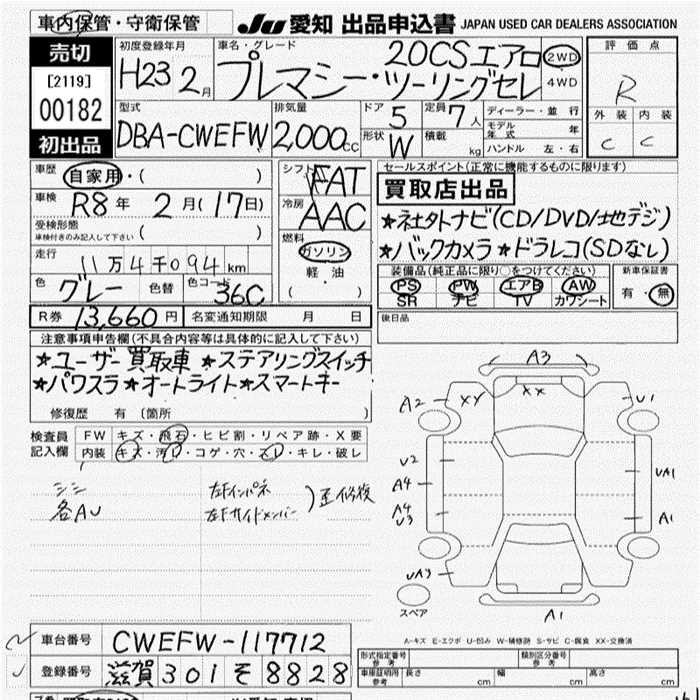 車内保管・守衛保管
JU 愛知 出品申込書 JAPAN USED CAR DEALERS ASSOCIATION
売切
[2119]
00182
初出品
初度登録年月
H23 2月
車名・グレード
20CSエアロ
プレマシー・ツーリングセレ
2WD
4WD
評価点
R
外装 内装
C C
型式
DBA-CWEFW
排気量
2,000cc
ドア 5
定員 7人
形状 W
積載 kg
ディーラー・並行
モデル年式 年
ハンドル 左・右
車歴
自家用・( )
車検 R8年 2月(17日)
受検形態
車検付きのみ記入して下さい ( )
走行 11万4千094km
色 グレー 色替 色コード 36C
シフト FAT
冷房 AAC
燃料
ガソリン
軽油
( )
セールスポイント(正常に機能するものに限ります)
買取店出品
★社外ナビ(CD/DVD/地デジ)
★バックカメラ ★ドラレコ(SDなし)
装備品(純正品に限り○をつけてください)
PS PW エアB AW
SR ナビ TV カワシート
新車保証書
有・無
R券 13,660円 名変通知期限 月 日
後日品
注意事項申告欄(不具合内容等は具体的に記入して下さい)
★ユーザー買取車 ★ステアリングスイッチ
★パワスラ ★オートライト ★スマートキー
修復歴 有 〔箇所 〕
検査員記入欄
FW キズ・飛石・ヒビ割・リペア跡・X要
内装 キズ・汚レ・コゲ・穴・スレ・キレ・破レ
シミ
各AU
左Fインパネ
左Fサイドメンバー
歪 修復
A3
XX
A2 XY
U1
U2
A4
A4
U3
UA1
A1
UA3
スペア
A1
A-キズ E-エクボ U-凹み W-補修跡 S-サビ C-腐食 XX-交換済
車台番号 CWEFW-117712
登録番号 滋賀 301 そ 8828
形式指定番号 参考
類別区分番号 参考
車庫証明用 参考 長さ cm 幅 cm 高さ cm